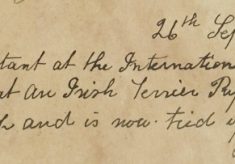 26th Sep
tant at the Internation
at An Irish Terrier Pup
and is now tied u